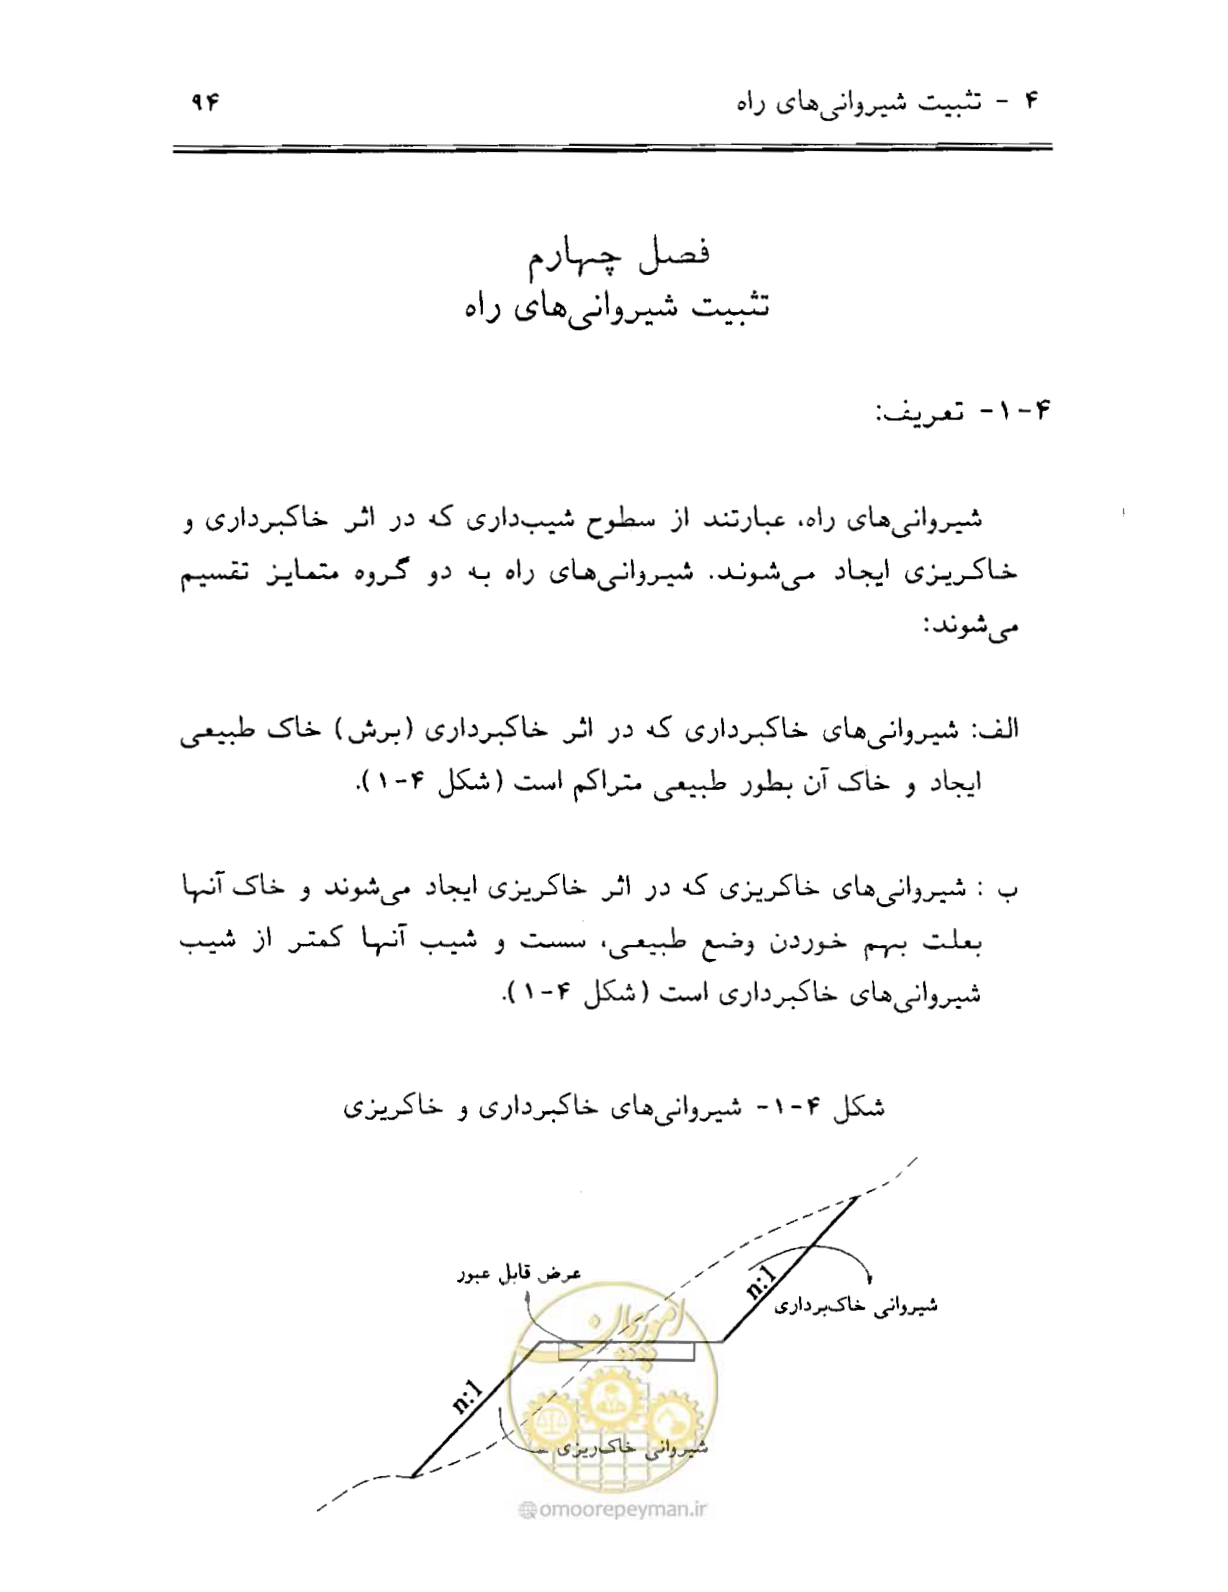 ۴ - تثبیت شیروانی‌های راه ۹۴
فصل چهارم
تثبیت شیروانی‌های راه
۴-۱- تعریف:
شیروانی‌های راه، عبارتند از سطوح شیب‌داری که در اثر خاکبرداری و
خاکریزی ایجاد می‌شوند. شیروانی‌های راه به دو گروه متمایز تقسیم
می‌شوند:
الف: شیروانی‌های خاکبرداری که در اثر خاکبرداری (برش) خاک طبیعی
ایجاد و خاک آن بطور طبیعی متراکم است (شکل ۴-۱).
ب : شیروانی‌های خاکریزی که در اثر خاکریزی ایجاد می‌شوند و خاک آنها
بعلت بهم خوردن وضع طبیعی، سست و شیب آنها کمتر از شیب
شیروانی‌های خاکبرداری است (شکل ۴-۱).
شکل ۴-۱- شیروانی‌های خاکبرداری و خاکریزی
عرض قابل عبور
n:1
شیروانی خاک‌برداری
امور پیمان
n:1
شیروانی خاک‌ریزی
@omoorepeyman.ir